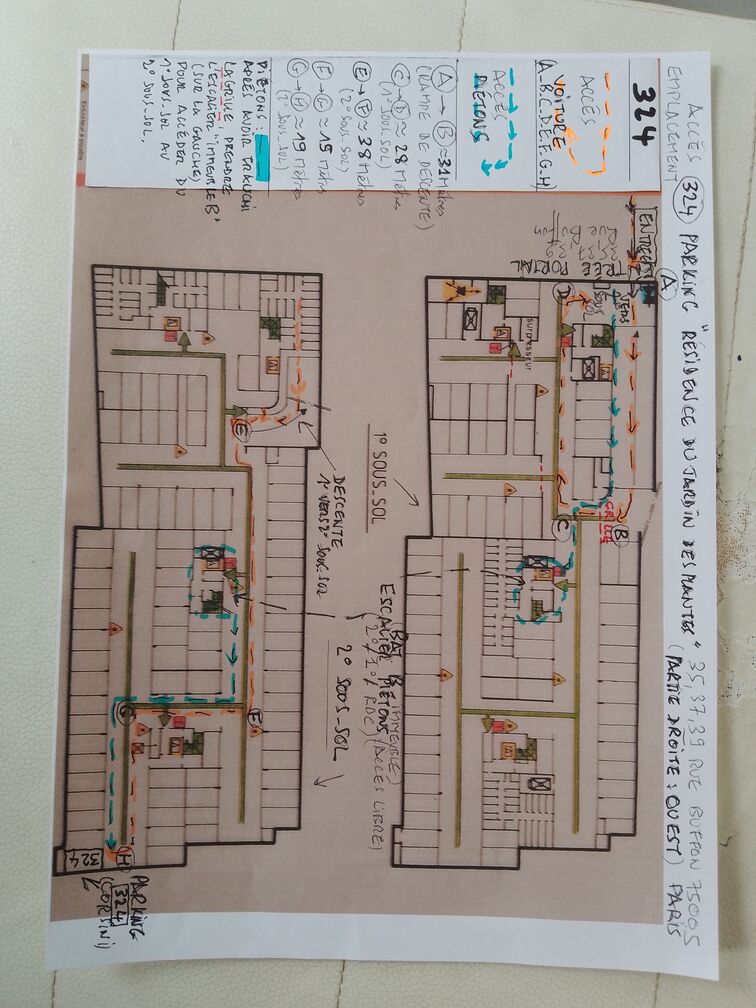 ACCÈS 324 PARKING "RÉSIDENCE DU JARDIN DES PLANTES" 35, 37, 39 RUE BUFFON 75005
EMPLACEMENT (PARTIE DROITE : OUEST) PARIS
324
ACCÈS
VOITURE
(A-B-C-D-E-F-G-H)
ACCÈS
PIETONS
A → B ≈ 31 Mètres
(RAMPE DE DESCENTE)
C → D ≈ 28 Mètres
(1° SOUS SOL)
E → F ≈ 38 Mètres
(2° SOUS SOL)
F → G ≈ 15 Mètres
G → H ≈ 19 Mètres
(2° SOUS SOL)
PIÉTONS :
APRÈS AVOIR FRANCHI
LA GRILLE PRENDRE
L'ESCALIER "IMMEUBLE B"
(SUR LA GAUCHE)
POUR ACCÉDER DU
1° SOUS-SOL AU
2° SOUS-SOL.
ENTRÉE
A
VERS
SOUS
SOL
D
SURPRESSEUR
GRILLE
B
C
1° SOUS-SOL
DESCENTE
1° VERS 2° SOUS-SOL
BAT B IMMEUBLE
ESCALIER PIETONS (ACCÈS LIBRE)
(2°/1°/RDC)
2° SOUS-SOL
E
F
G
H
324
PARKING
324
(CORSINI)